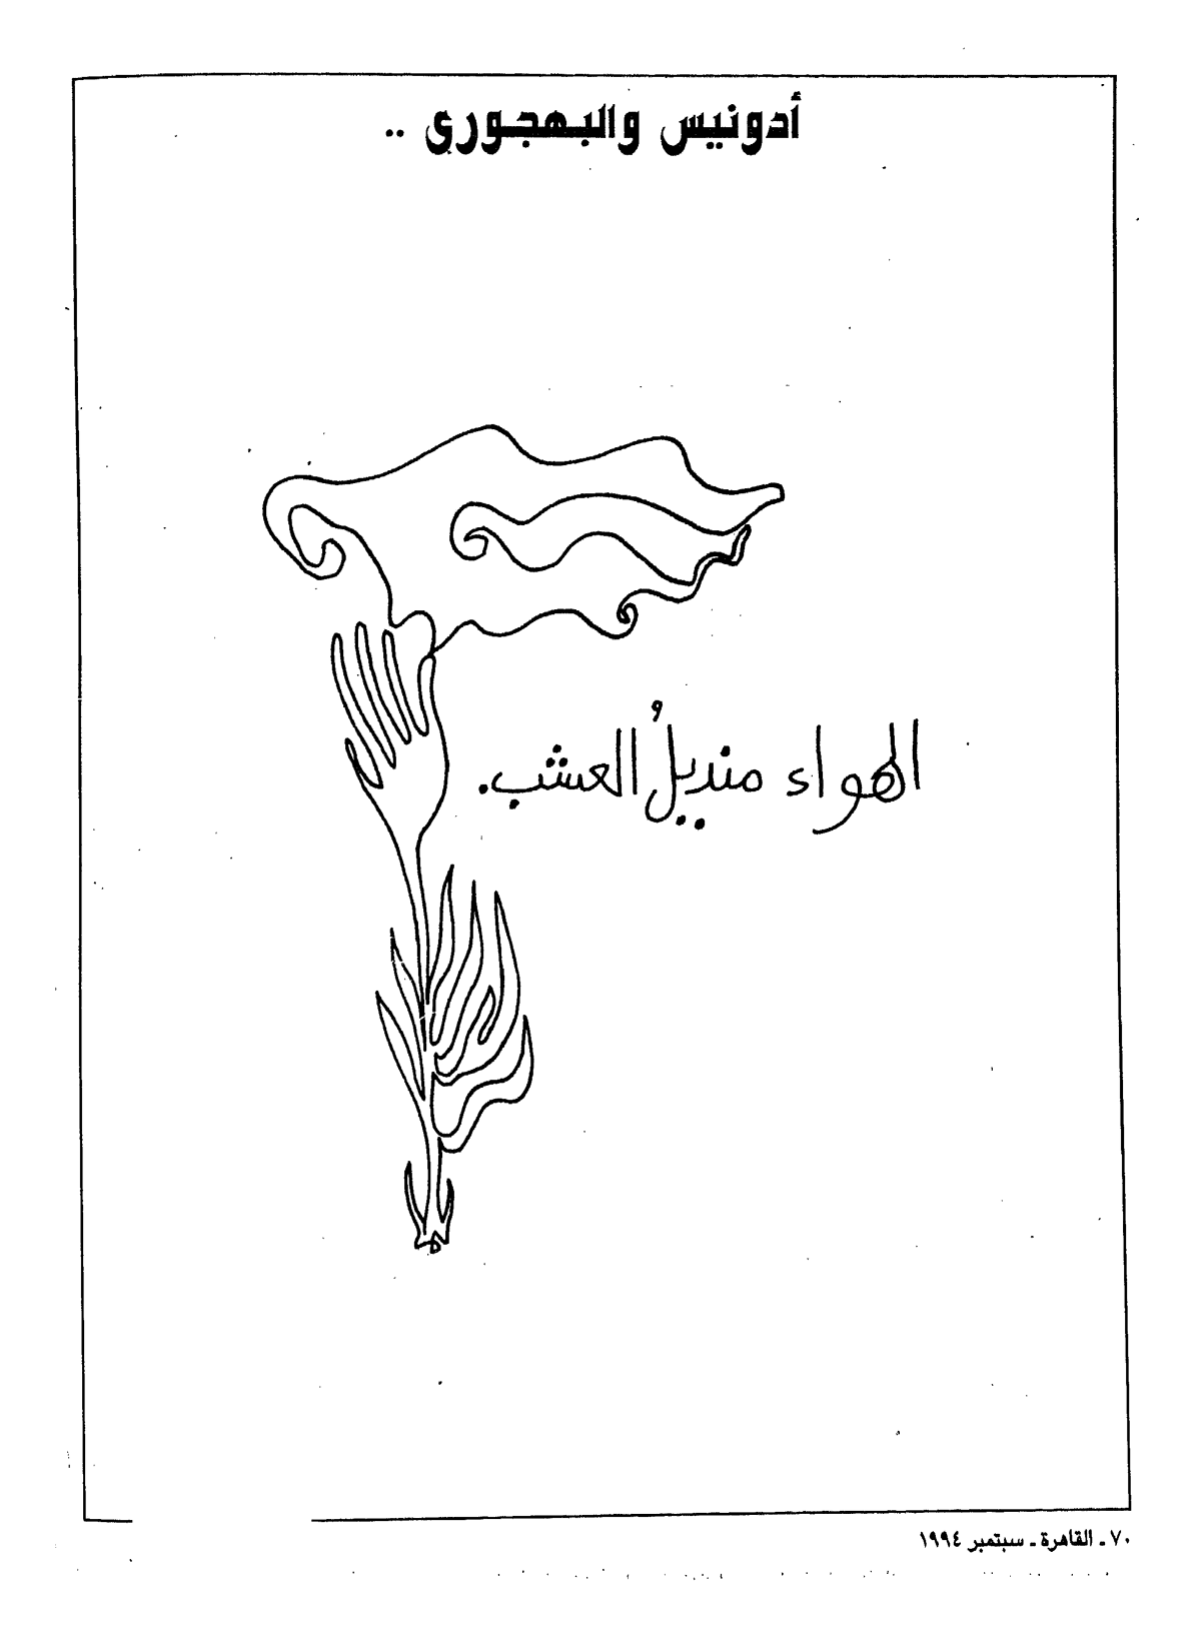 أدونيس والبهجوري ..
الهواء منديلُ العشب.
٧٠ ـ القاهرة ـ سبتمبر ١٩٩٤